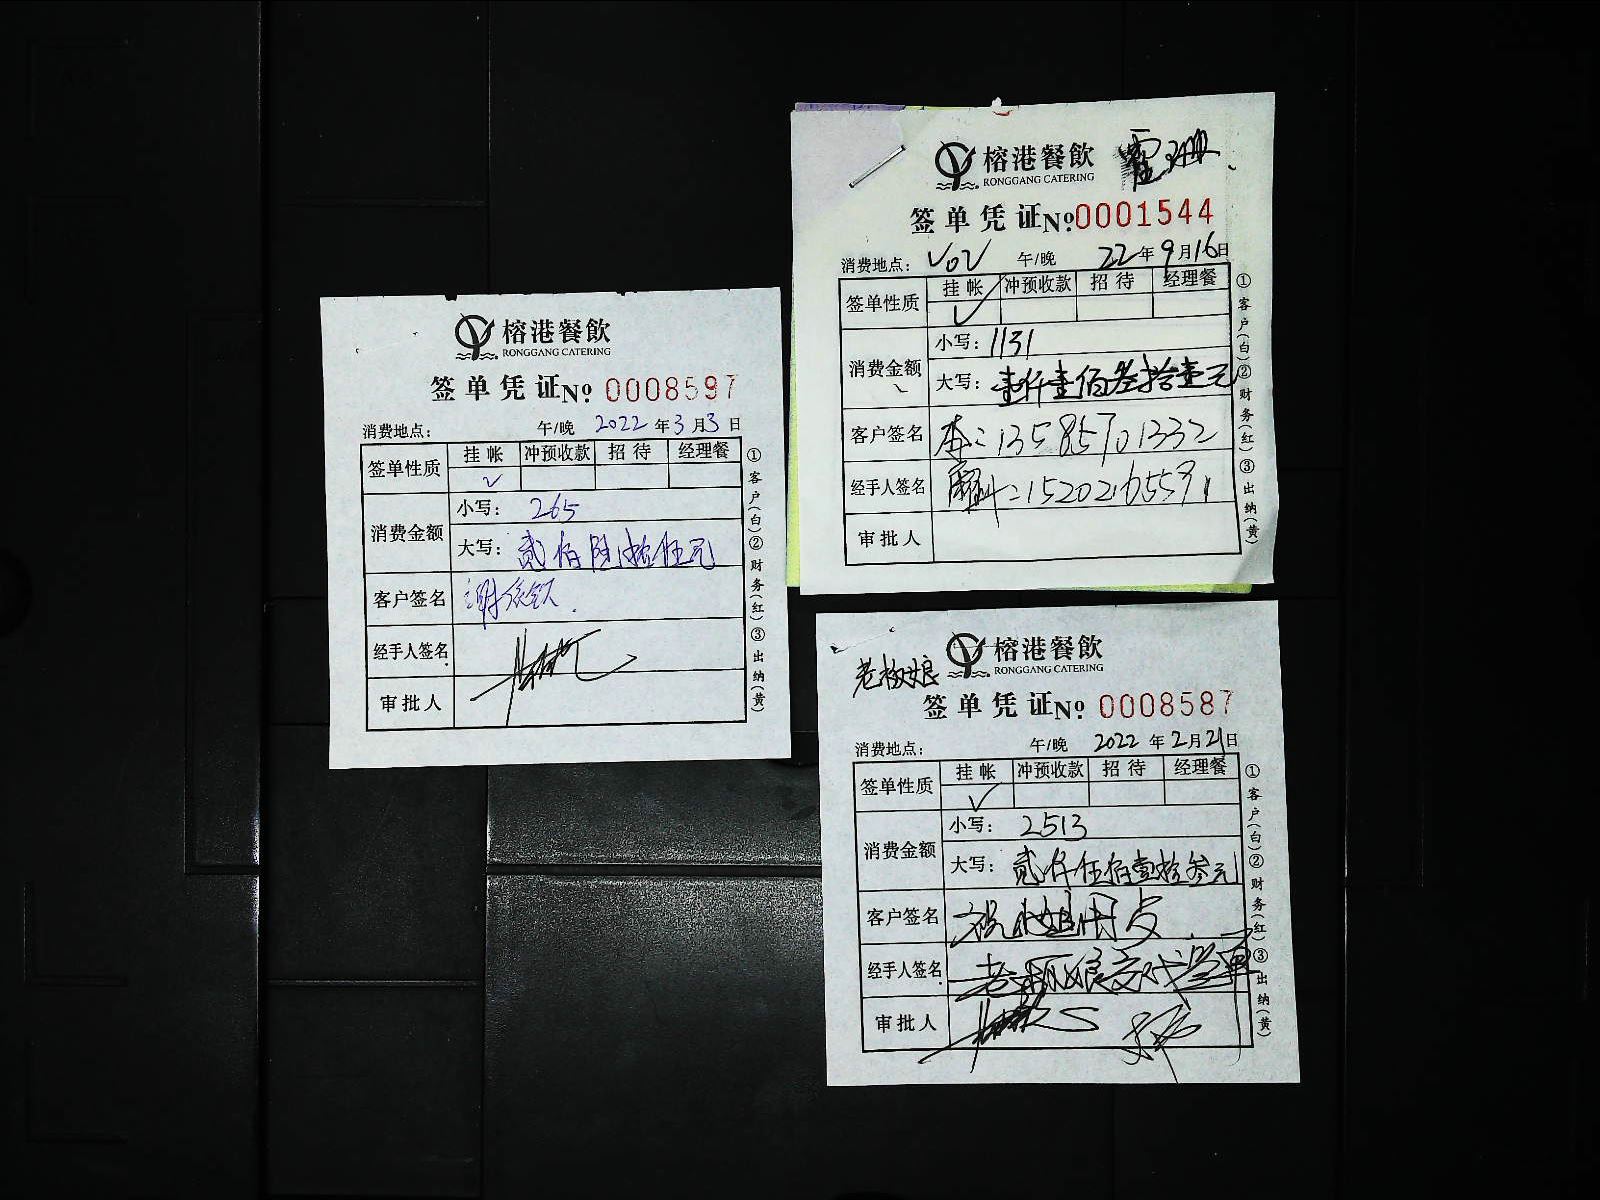 榕港餐飲
RONGGANG CATERING
签单凭证 № 0008597
消费地点: 午/晚 2022年3月3日
签单性质 挂帐 冲预收款 招待 经理餐
✓
消费金额 小写: 265
大写: 贰佰陆拾伍元
客户签名
经手人签名
审批人
①客户(白)②财务(红)③出纳(黄)
榕港餐飲 霍珊
RONGGANG CATERING
签单凭证 №0001544
消费地点: V02 午/晚 22年9月16日
签单性质 挂帐 冲预收款 招待 经理餐
✓
消费金额 小写: 1131
大写: 壹仟壹佰叁拾壹元
客户签名 13585701332
经手人签名
审批人
①客户(白)②财务(红)③出纳(黄)
榕港餐飲
RONGGANG CATERING
老板娘
签单凭证 № 0008587
消费地点: 午/晚 2022年2月21日
签单性质 挂帐 冲预收款 招待 经理餐
✓
消费金额 小写: 2513
大写: 贰仟伍佰壹拾叁元
客户签名
经手人签名 老板娘交代签单
审批人
①客户(白)②财务(红)③出纳(黄)